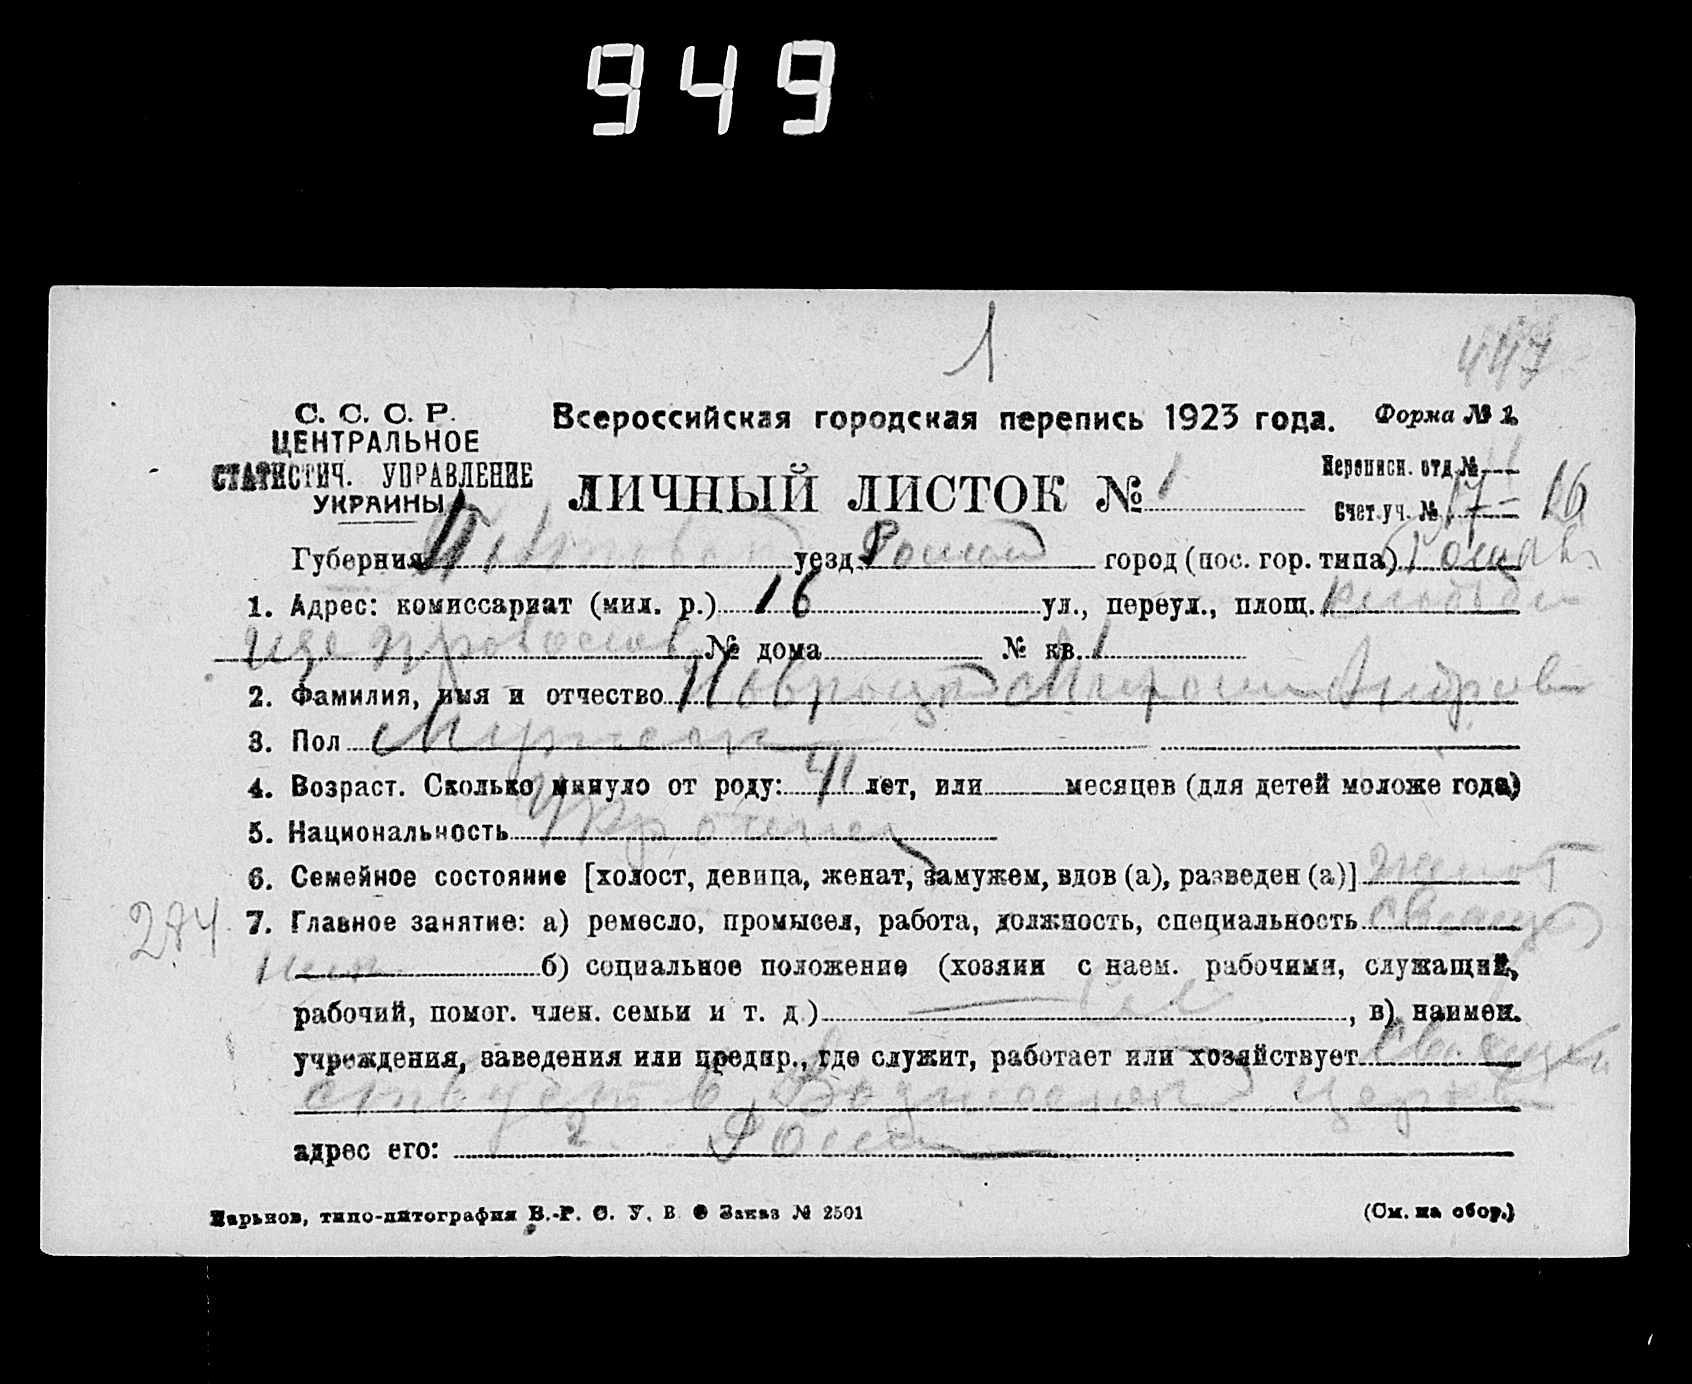 949
1
447
С. С. С. Р.
ЦЕНТРАЛЬНОЕ
СТАТИСТИЧ. УПРАВЛЕНИЕ
УКРАИНЫ
Всероссийская городская перепись 1923 года. Форма № 1
Переписн. отд. №
ЛИЧНЫЙ ЛИСТОК № 1
Счет. уч. № 17 = 16
Губерния уезд Ромен город (пос. гор. типа) Ромны
1. Адрес: комиссариат (мил. р.) 16 ул., переул., площ. Кладби
ще Православ № дома № кв. 1
2. Фамилия, имя и отчество Навроцкий Мирон Андреев
3. Пол Мужской
4. Возраст. Сколько минуло от роду: 41 лет, или месяцев (для детей моложе года)
5. Национальность Украинец
6. Семейное состояние [холост, девица, женат, замужем, вдов (а), разведен (а)] женат
274
7. Главное занятие: а) ремесло, промысел, работа, должность, специальность Свящ
ник б) социальное положение (хозяин с наем. рабочими, служащий,
рабочий, помог. член. семьи и т. д.) , в) наимен.
учреждения, заведения или предпр., где служит, работает или хозяйствует Священ
ствует в Вознесенской церкви
адрес его: г. Ромен
Харьков, типо-литография В.-Р. С. У. В. О Заказ № 2501 (См. на обор.)